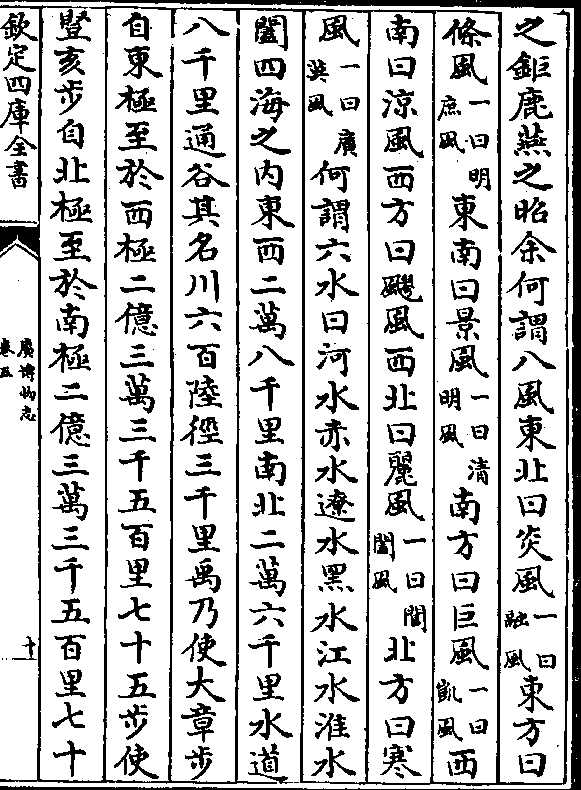 之鉅鹿燕之昭余何謂八風東北曰炎風一曰融風東方曰
條風一曰明庶風東南曰景風一曰清明風南方曰巨風一曰凱風西
南曰涼風西方曰飂風西北曰麗風一曰閶闔風北方曰寒
風一曰廣莫風何謂六水曰河水赤水遼水黑水江水淮水
闔四海之內東西二萬八千里南北二萬六千里水道
八千里通谷其名川六百陸徑三千里禹乃使大章步
自東極至於西極二億三萬三千五百里七十五步使
豎亥步自北極至於南極二億三萬三千五百里七十
欽定四庫全書
廣博物志
卷五
十